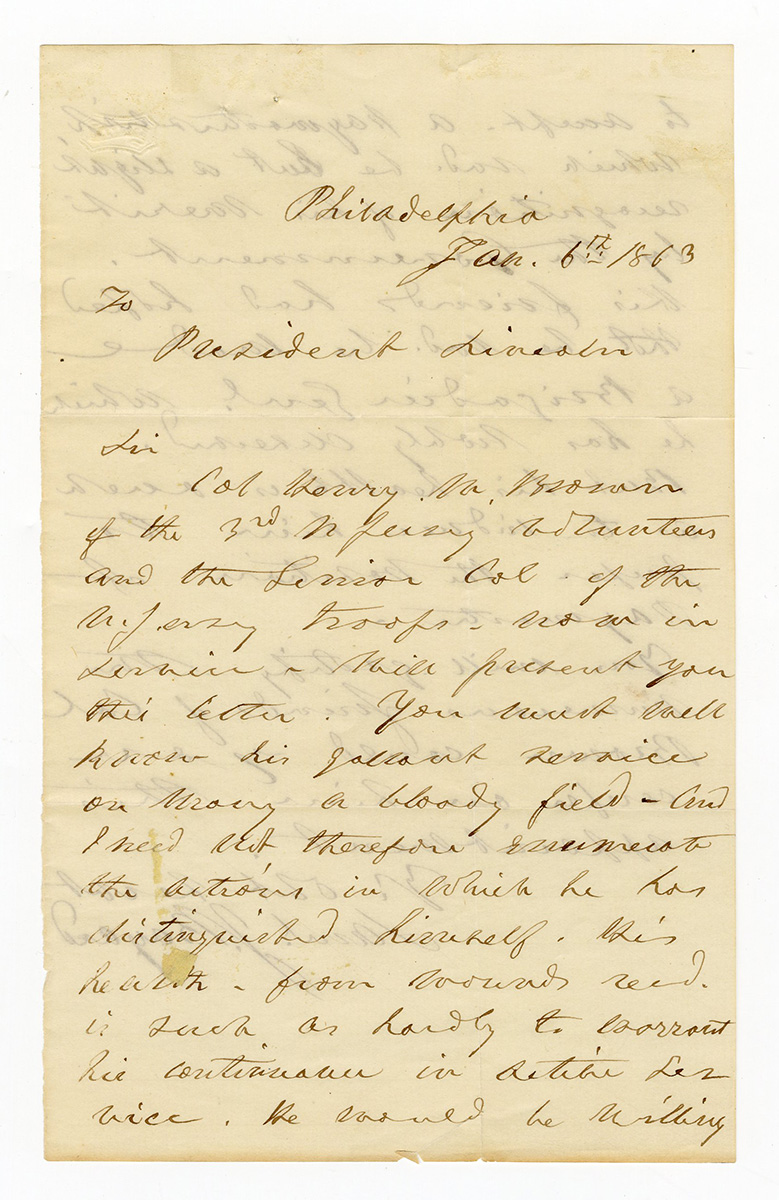 Philadelphia
Jan. 6th 1863
To
President Lincoln
Sir
Col Henry W. Brown
of the 3rd N Jersey Volunteers
and the Senior Col. of the
N. Jersey troops - now in
service - will present you
this letter. You must well
know his gallant service
on many a bloody field - and
I need not therefore enumerate
the actions in which he has
distinguished himself. His
health - from wounds recd.
is such as hardly to warrant
his continuance in active ser
vice. He would be willing